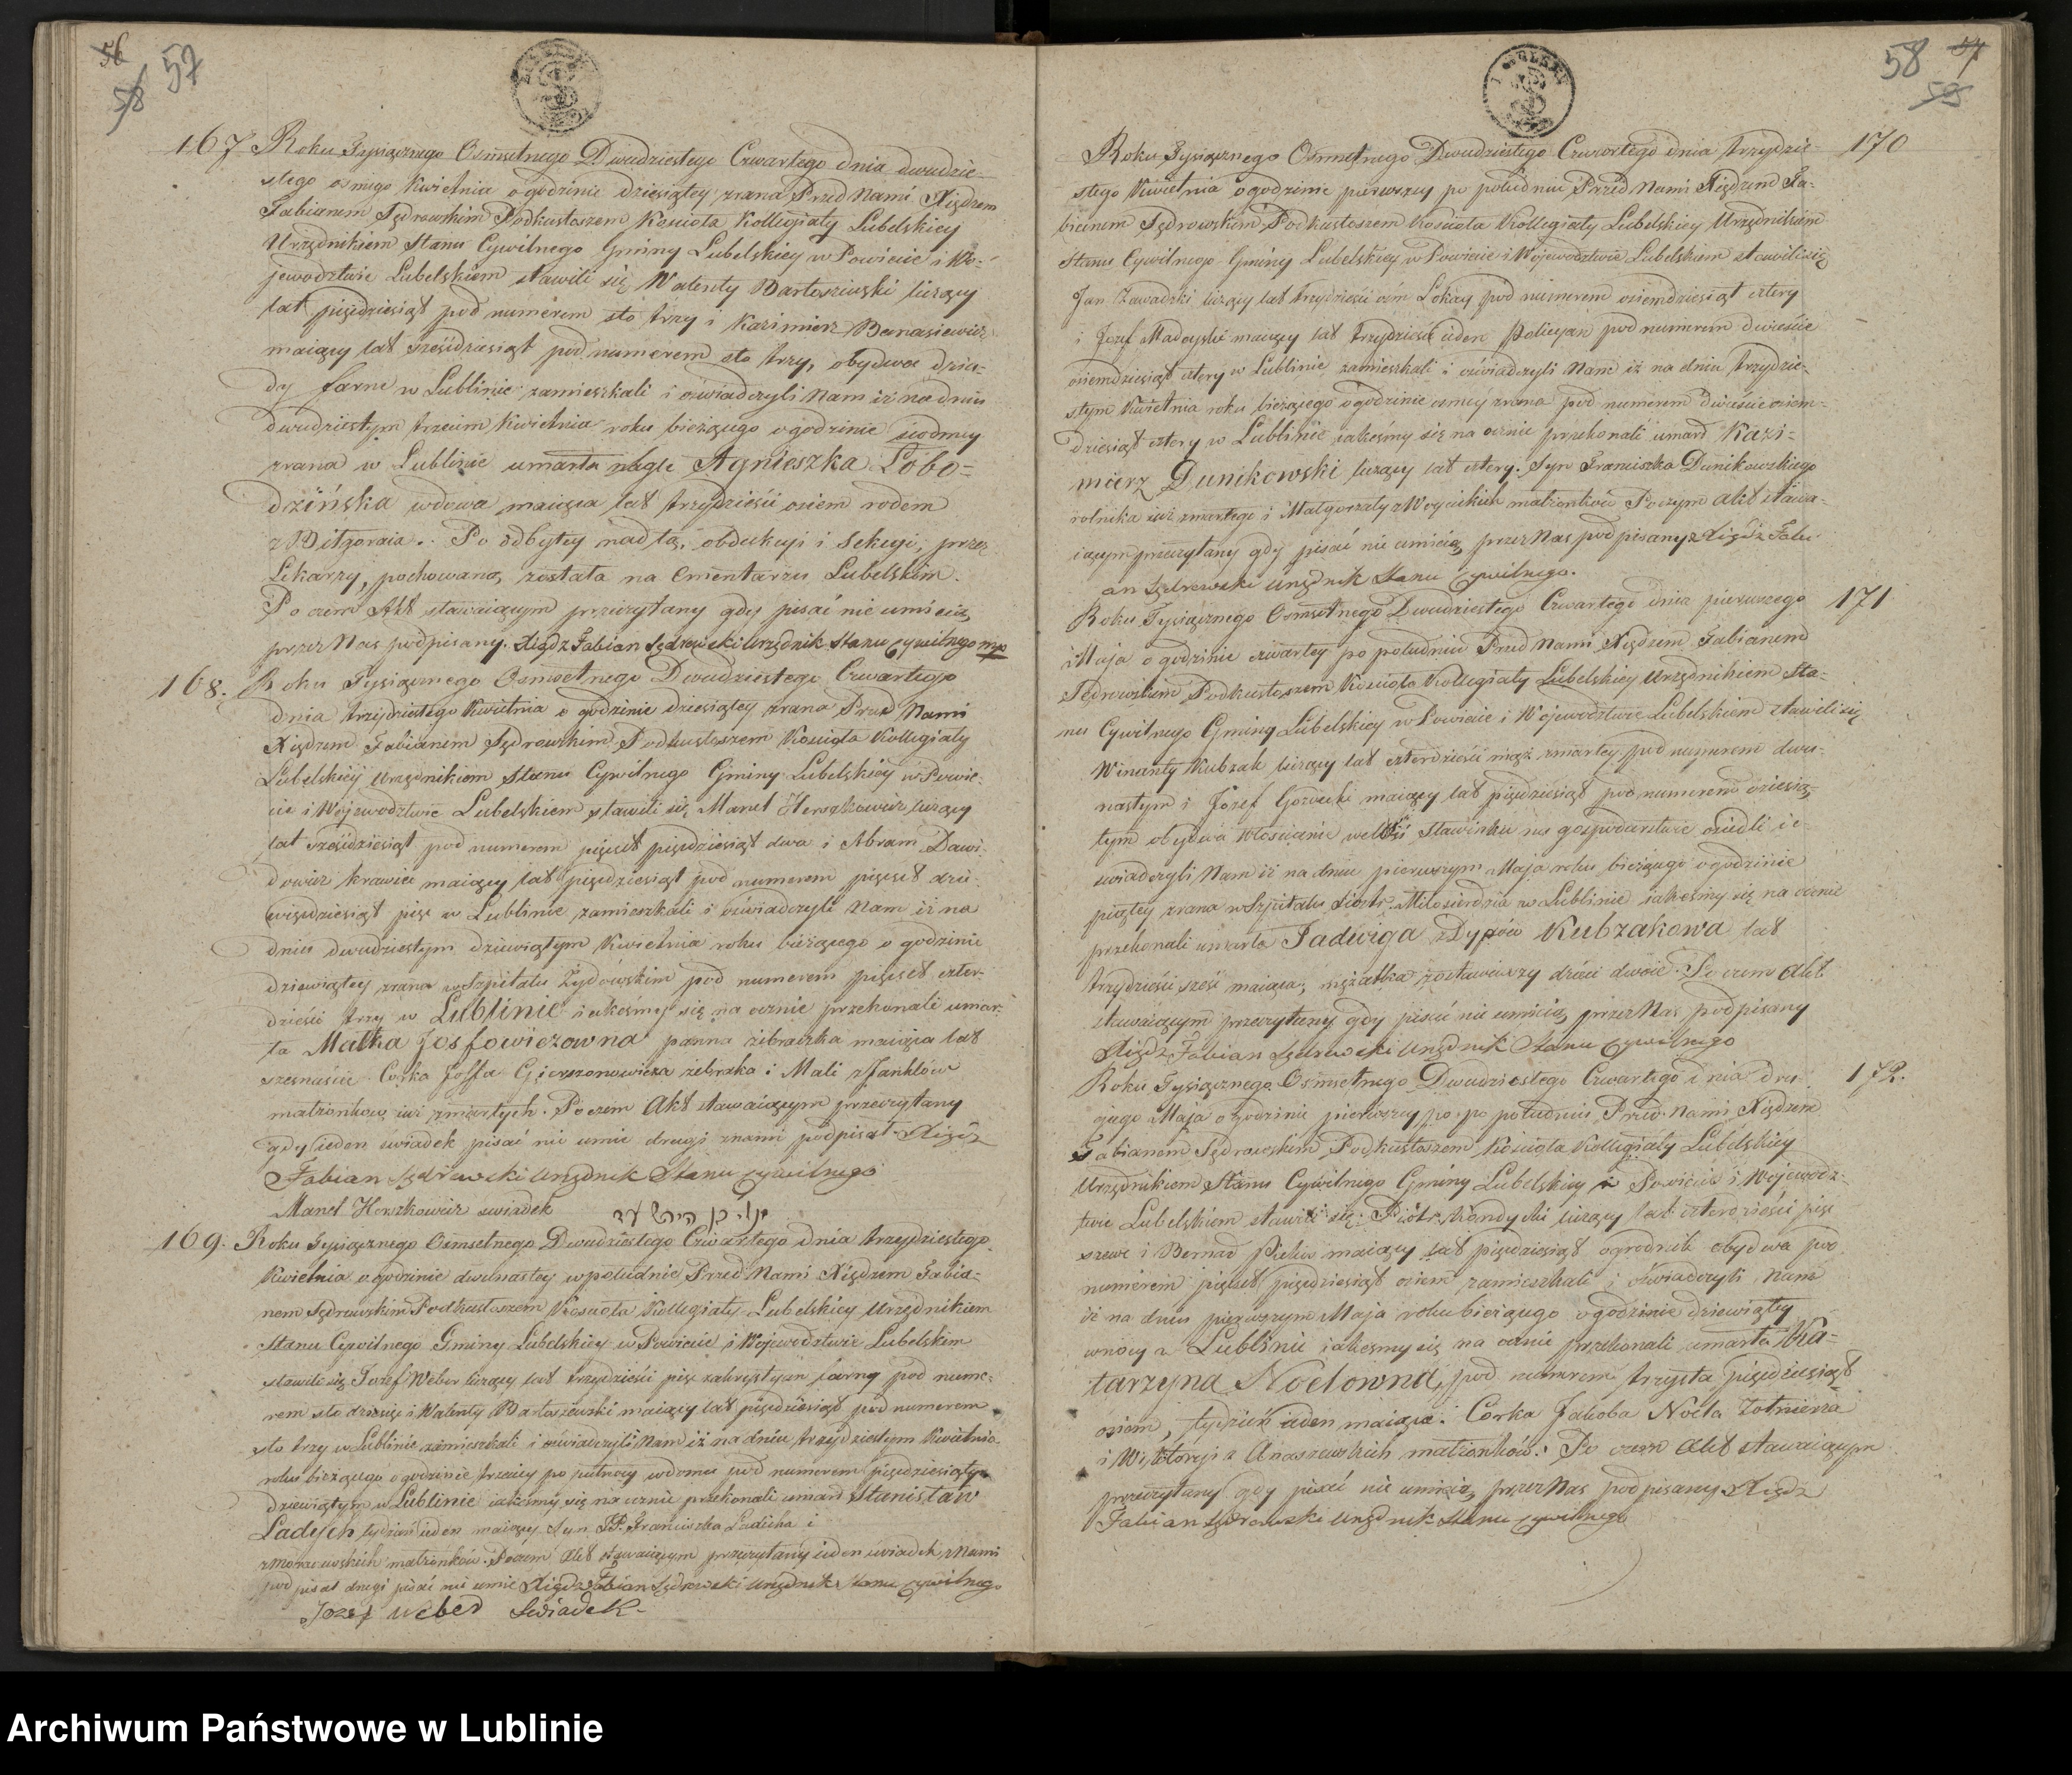 56
58
57
167 Roku Tysiącznego Osmsetnego Dwudziestego Czwartego dnia dwudzie-
stego osmego Kwietnia o godzinie dziesiątey zrana Przed Nami Xiędzem
Fabianem Sędrowskim Podkustoszem Kościoła Kollegiaty Lubelskiey
Urzędnikiem Stanu Cywilnego Gminy Lubelskiey w Powiecie i Wo-
jewodztwie Lubelskiem stawili się Walenty Bartoszewski liczący
lat pięćdziesiąt pod numerem sto trzy i Kazimierz Banasiewicz
maiący lat sześćdziesiąt pod numerem sto trzy, obydwa dzia-
dy farni w Lublinie zamieszkali i oświadczyli Nam iż na dniu
dwudziestym trzecim Kwietnia roku bieżącego o godzinie siodmey
zrana w Lublinie umarła nagle Agnieszka Łobo=
dzińska wdowa maiąca lat trzydzieści osiem rodem
z Biłgoraia. Po odbytey nad tą, obdukcyi i Sekcyi, przez
Lekarzy, pochowaną została na Cmentarzu Lubelskim.
Po czem Akt stawaiącym przeczytany gdy pisać nie umieią
przez Nas podpisany. Xiądz Fabian Sędrowski Urzędnik Stanu Cywilnego mp
168. Roku Tysiącznego Osmsetnego Dwudziestego Czwartego
dnia trzydziestego Kwietnia o godzinie dziesiątey zrana Przed Nami
Xiędzem Fabianem Sędrowskim Podkustoszem Kościoła Kollegiaty
Lubelskiey Urzędnikiem Stanu Cywilnego Gminy Lubelskiey w Powie-
cie i Wojewodztwie Lubelskiem stawili się Manel Herszkowicz liczący
lat sześćdziesiąt pod numerem pięćset pięćdziesiąt dwa i Abram Dawi-
dowicz krawiec maiący lat pięćdziesiąt pod numerem pięćset dzie-
więćdziesiąt pięć w Lublinie zamieszkali i oświadczyli Nam iż na
dniu dwudziestym dziewiątym Kwietnia roku bieżącego o godzinie
dziewiątey zrana w Szpitalu Żydowskim pod numerem pięćset czter-
dzieści trzy w Lublinie iakeśmy się na ocznie przekonali umar-
ła Malka Josfowiczowna panna żebraczka maiąca lat
szesnaście. Corka Josfa Gierszonowicza żebraka i Mali z Janklów
małżonkow iuż zmarłych. Po czem Akt stawaiącym przeczytany
gdy ieden świadek pisać nie umie drugi z nami podpisał. Xiądz
Fabian Sędrowski Urzędnik Stanu Cywilnego
Manel Herszkowicz swiadek
169. Roku Tysiącznego Osmsetnego Dwudziestego Czwartego dnia trzydziestego
Kwietnia o godzinie dwunastey w południe Przed Nami Xiędzem Fabia-
nem Sędrowskim Podkustoszem Kościoła Kollegiaty Lubelskiey Urzędnikiem
Stanu Cywilnego Gminy Lubelskiey w Powiecie i Wojewodztwie Lubelskim
stawili się Jozef Weber liczący lat trzydzieści pięć zakrystyan farny pod nume-
rem sto dziesięć i Walenty Bartoszewski maiący lat pięćdziesiąt pod numerem
sto trzy w Lublinie zamieszkali i oświadczyli Nam iż na dniu trzydziestym Kwietnia
roku bieżącego o godzinie trzeciey po pułnocy w domu pod numerem pięćdziesiątym
dziewiątym w Lublinie iakeśmy się na ocznie przekonali umarł Stanisław
Ladych tydzień ieden maiący Syn PP. Franciszka Ladicha i
z Morawskich małżonków. Poczem Akt stawaiącym przeczytany ieden świadek z Nami
podpisał drugi pisać nie umie Xiądz Fabian Sędrowski Urzędnik Stanu Cywilnego
Jozef Weber Swiadek
58 57
59
170
Roku Tysiącznego Osmsetnego Dwudziestego Czwartego dnia trzydzie-
stego Kwietnia o godzinie pierwszey po południu Przed Nami Xiędzem Fa-
bianem Sędrowskim Podkustoszem Kościoła Kollegiaty Lubelskiey Urzędnikiem
Stanu Cywilnego Gminy Lubelskiey w Powiecie i Wojewodztwie Lubelskim stawili się
Jan Zawadzki liczący lat trzydzieści ośm Lokay pod numerem osiemdziesiąt cztery
i Jozef Madeyski maiący lat trzydzieści ieden Policyan pod numerem dwieście
osiemdziesiąt cztery w Lublinie zamieszkali i oświadczyli Nam iż na dniu trzydzie-
stym Kwietnia roku bieżącego o godzinie osmey zrana pod numerem dwieście osiem-
dziesiąt cztery w Lublinie iakeśmy się na ocznie przekonali umarł Kazi=
mierz Dunikowski liczący lat cztery. Syn Franciszka Dunikowskiego
rolnika iuż zmarłego i Małgorzaty z Woycickich małżonków Poczym Akt stawa-
iącym przeczytany gdy pisać nie umieią przez Nas podpisany Xiądz Fabi-
an Sędrowski Urzędnik Stanu Cywilnego.
171
Roku Tysiącznego Osmsetnego Dwudziestego Czwartego dnia pierwszego
Maja o godzinie czwartey po południu Przed Nami Xiędzem Fabianem
Sędrowskim Podkustoszem Kościoła Kollegiaty Lubelskiey Urzędnikiem Sta-
nu Cywilnego Gminy Lubelskiey w Powiecie i Wojewodztwie Lubelskiem stawili się
Winanty Kubzak liczący lat czterdzieści mąż zmarłey pod numerem dwu-
nastym i Jozef Gorecki maiący lat pięćdziesiąt pod numerem dziesią-
tym obydwa włościanie we Wsi Sławinku na gospodarstwie osiedli i o-
świadczyli Nam iż na dniu pierwszym Maja roku bieżącego o godzinie
piątey zrana w Szpitalu Siostr Miłosierdzia w Lublinie iakeśmy się na ocznie
przekonali umarła Jadwiga z Dypów Kubzakowa lat
trzydzieści sześć maiąca, mężatka zostawiwszy dzieci dwoie. Po czem Akt
stawaiącym przeczytany gdy pisać nie umieią przez Nas podpisany
Xiądz Fabian Sędrowski Urzędnik Stanu Cywilnego
172.
Roku Tysiącznego Osmsetnego Dwudziestego Czwartego dnia dru-
giego Maja o godzinie pierwszey po po południu Przed Nami Xiędzem
Fabianem Sędrowskim Podkustoszem Kościoła Kollegiaty Lubelskiey
Urzędnikiem Stanu Cywilnego Gminy Lubelskiey w Powiecie i Wojewodz-
twie Lubelskiem stawili się Piotr Kondycki liczący lat czterdzieści pięć
szewc i Bernard maiący lat pięćdziesiąt ogrodnik obydwa pod
numerem pięćset pięćdziesiąt osiem zamieszkali i oświadczyli Nam
iż na dniu pierwszym Maja roku bieżącego o godzinie dziewiątey
w nocy w Lublinie iakeśmy się na ocznie przekonali umarła Ka=
tarzyna Noelowna, pod numerem trzysta pięćdziesiąt
osiem, tydzień ieden maiąca. Corka Jakoba Noela Żołnierza
i Wiktoryi z Anaszewskich małżonków. Po czem Akt stawaiącym
przeczytany gdy pisać nie umieią przez Nas podpisany Xiądz
Fabian Sędrowski Urzędnik Stanu Cywilnego
Archiwum Państwowe w Lublinie